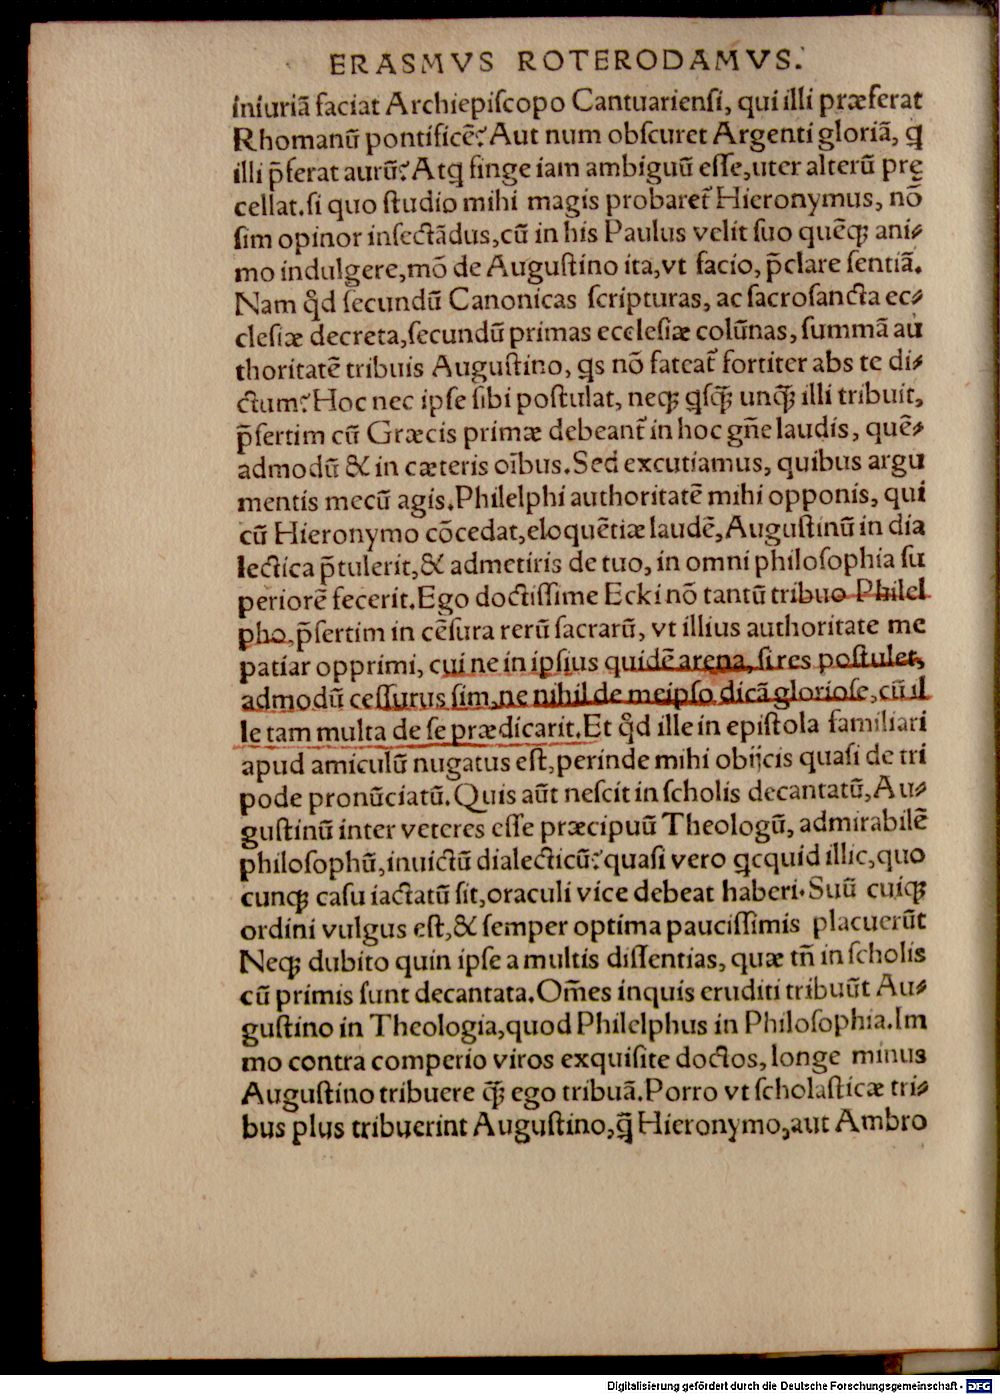 ERASMVS ROTERODAMVS.
iniuriã faciat Archiepiſcopo Cantuarienſi, qui illi præferat
Rhomanũ pontificẽ? Aut num obſcuret Argenti gloriã, ꝗ
illi p̃ferat aurũ? Atꝗ finge iam ambiguũ eſſe, uter alterũ prę
cellat. ſi quo ſtudio mihi magis probaret᷑ Hieronymus, nõ
ſim opinor inſectãdus, cũ in his Paulus velit ſuo quẽqꝫ ani⸗
mo indulgere, mõ de Auguſtino ita, vt facio, p̃clare ſentiã.
Nam qđ ſecundũ Canonicas ſcripturas, ac ſacroſancta ec⸗
cleſiæ decreta, ſecundũ primas eccleſiæ colũnas, ſummã au
thoritatẽ tribuis Auguſtino, ꝗs nõ fateat᷑ fortiter abs te di⸗
ctum? Hoc nec ipſe ſibi poſtulat, neqꝫ ꝗſꝗ̃ȝ unꝗ̃ȝ illi tribuit,
p̃ſertim cũ Græcis primæ debeant᷑ in hoc gñe laudis, quẽ⸗
admodũ & in cæteris oĩbus. Sed excutiamus, quibus argu
mentis mecũ agis. Philelphi authoritatẽ mihi opponis, qui
cũ Hieronymo cõcedat, eloquẽtiæ laudẽ, Auguſtinũ in dia
lectica p̃tulerit, & admetiris de tuo, in omni philoſophia ſu
periorẽ fecerit. Ego doctiſſime Ecki nõ tantũ tribuo Philel
pho, p̃ſertim in cẽſura rerũ ſacrarũ, vt illius authoritate me
patiar opprimi, cui ne in ipſius quidẽ arena, ſi res poſtulet,
admodũ ceſſurus ſim, ne nihil de meipſo dicã glorioſe, cũ il
le tam multa de ſe prædicarit. Et qđ ille in epiſtola familiari
apud amiculũ nugatus eſt, perinde mihi obijcis quaſi de tri
pode pronũciatũ. Quis aũt neſcit in ſcholis decantatũ, Au⸗
guſtinũ inter veteres eſſe præcipuũ Theologũ, admirabilẽ
philoſophũ, inuictũ dialecticũ? quaſi vero ꝗcquid illic, quo
cunqꝫ caſu iactatũ ſit, oraculi vice debeat haberi. Suũ cuiqꝫ
ordini vulgus eſt, & ſemper optima pauciſſimis placuerũt
Neqꝫ dubito quin ipſe a multis diſſentias, quæ tñ in ſcholis
cũ primis ſunt decantata. Om̃es inquis eruditi tribuũt Au⸗
guſtino in Theologia, quod Philelphus in Philoſophia. Im
mo contra comperio viros exquiſite doctos, longe minus
Auguſtino tribuere ꝗ̃ȝ ego tribuã. Porro vt ſcholaſticæ tri⸗
bus plus tribuerint Auguſtino, ꝗ̃ Hieronymo, aut Ambro
Digitalisierung gefördert durch die Deutsche Forschungsgemeinschaft - DFG